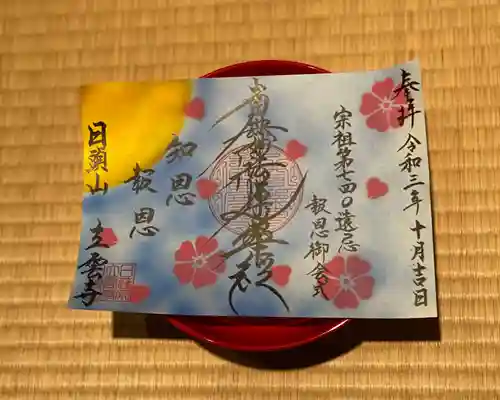 奉拝 令和三年十月吉日
宗祖第七四〇遠忌
報恩御会式
南無妙法蓮華経
知恩
報恩
日頭山 立雲寺